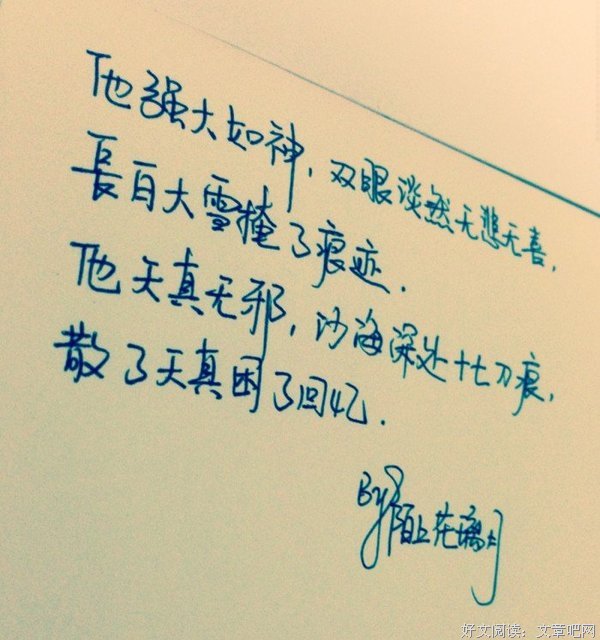 他强大如神，双眼淡然无悲无喜，
長白大雪掩了痕迹．
他天真无邪，沙海深处十七刀痕，
散了天真困了回忆．
By 陌上花璃
好文阅读：文章吧网